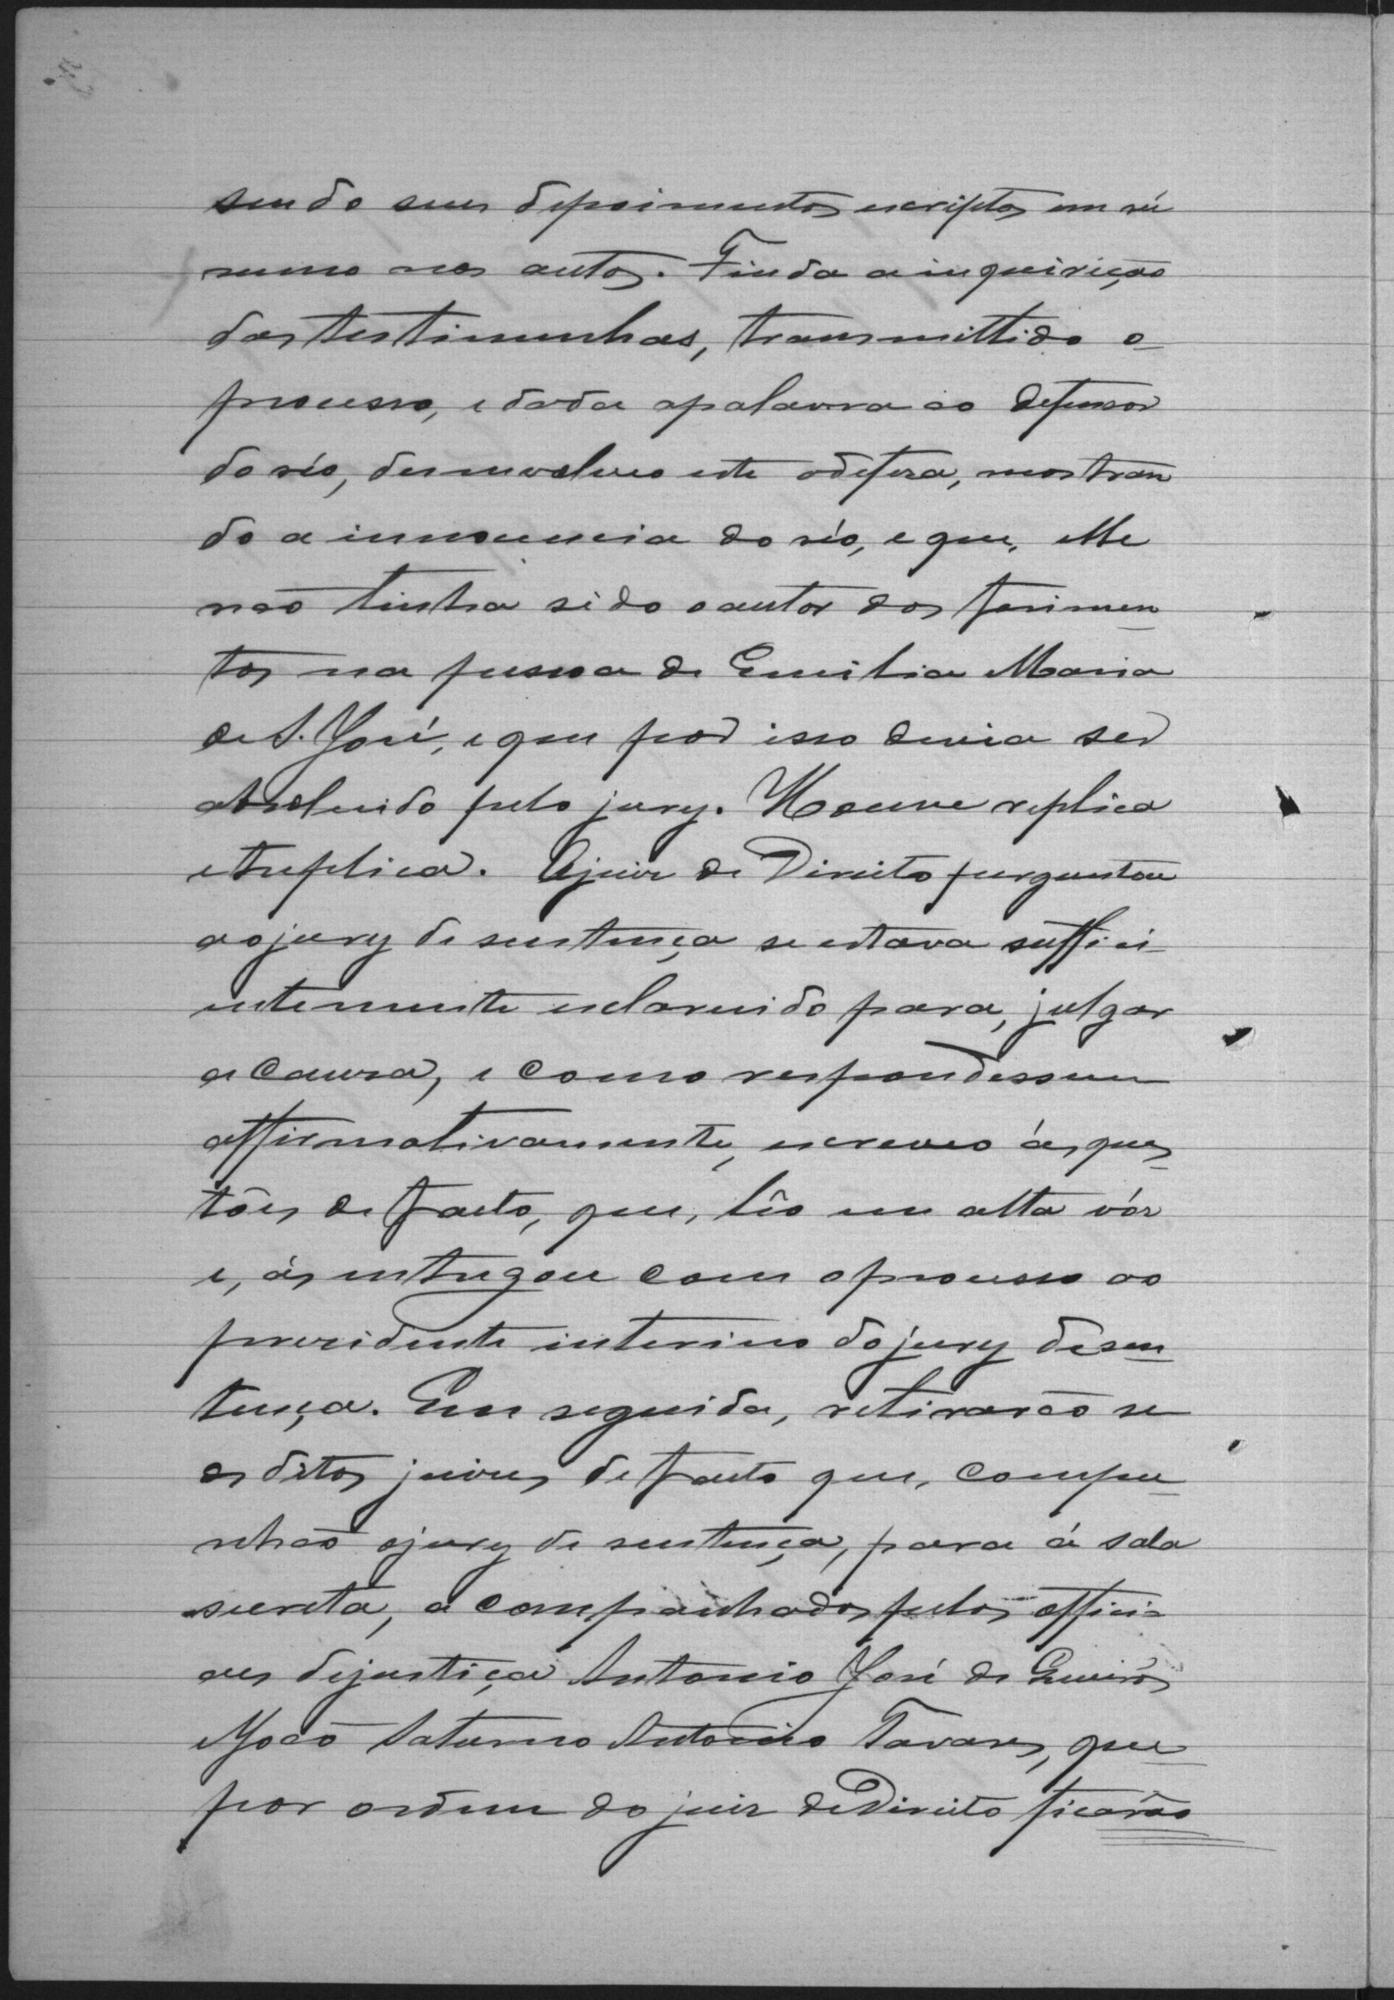 sendo seus depoimentos escriptos em re
sumo nos autos. Finda a inquirição
das testimunhas, transmittido o
processo, e dada a palavra ao defensor
do réo, desenvolveo este a defesa, mostran
do a innocencia do réo, e que, elle
não tinha sido o autor dos ferimen
tos na pessoa de Emilia Maria
de S. José, e que por isso devia ser
absolvido pelo jury. Houve replica
e treplica. O juiz de Direito perguntou
ao jury de sentença se estava suffici
entemente esclarecido para, julgar
a causa, e como respondessem
affirmativamente, escreveo ás ques
tões de facto, que, lêo em alta vóz
e, ás entregou com o processo ao
prezidente interino do jury de sen
tença. Em seguida, retirarão se
os ditos juizes de facto que, compu
nhão o jury de sentença, para á sala
secreta, acompanhados pelos offici
aes de justiça Antonio José de
e João Saturno Antonio Tavares, que
por ordem do juiz de Direito ficarão